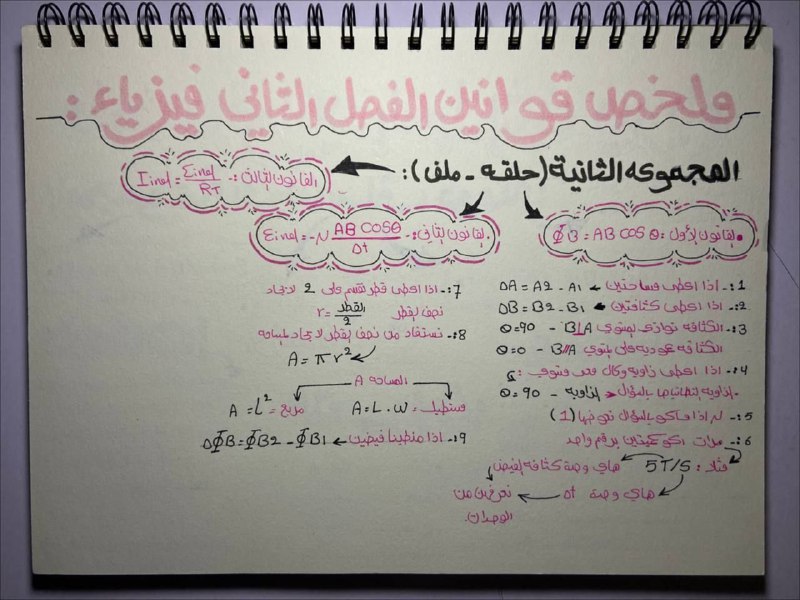 ملخص قوانين الفصل الثاني فيزياء :
المجموعه الثانية (حلقه - ملف) :
• القانون الأول :- ΦB = AB COS θ
القانون الثاني :- Eind = -N AB COSθ / Δt
القانون الثالث :- Iind = Eind / RT
1 :- اذا اعطى مساحتين ← ΔA = A2 - A1
2 :- اذا اعطى كثافتين ← ΔB = B2 - B1
3 :- الكثافه توازي المستوي B⊥A - θ=90
الكثافه عموديه على المستوي B//A - θ=0
4 :- اذا اعطى زاويه وكال مستوي :
الزاويه بالسؤال - الزاويه θ = 90
5 :- اذا ماكو بالسؤال نفرضها (1)
6 :- مرات اكو كميتين برقم واحد
مثلا : 5T/S هاي وحدة كثافه الفيض
هاي وحدة Δt ← نعرفهن من
الوحدات.
7 :- اذا اعطى قطر نقسم على 2 لايجاد
نصف القطر r = القطر / 2
8 :- نستفاد من نصف القطر لايجاد المساحه
A = π r²
المساحه A
مستطيل = A = L . W
مربع = A = L²
9 :- اذا منطينا فيضين ← ΔΦB = ΦB2 - ΦB1